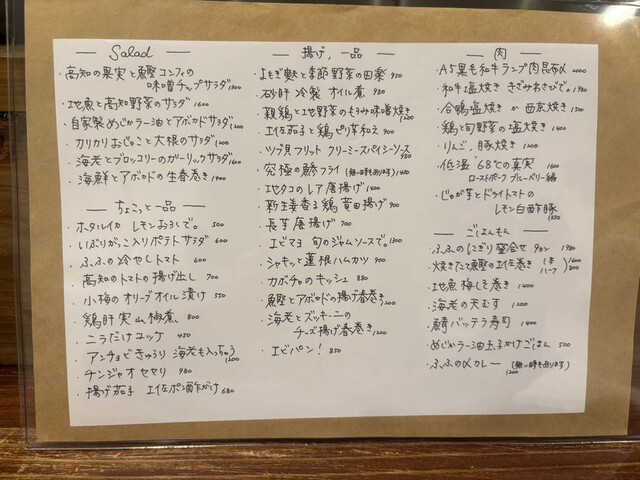 Salad
・高知の果実と鰹コンフィの
味噌チップサラダ 1400
・地魚と高知野菜のサラダ 1600
・自家製めじかラー油とアボカドサラダ 1200
・カリカリおじゃこと大根のサラダ 1200
・海老とブロッコリーのガーリックサラダ 1600
・海鮮とアボカドの生春巻き 1400
ちょこっと一品
・ホタルイカ レモンおろしで。 500
・いぶりがっこ入りポテトサラダ 600
・ふふの冷やしトマト 600
・高知のトマトの揚げ出し 700
・小梅のオリーブオイル漬け 550
・鶏肝実山椒煮 800
・ニラだけユッケ 450
・アンチョビきゅうり 海老も入っちゃう 1200
・チンジャオセセリ 980
・揚げ茄子 土佐ポン酢がけ 680
揚げ、一品
・よもぎ麩と季節野菜の田楽 950
・砂肝 冷製オイル煮 980
・親鶏と地野菜のもろみ味噌焼き 1200
・土佐茄子と鶏ピリ辛和え 900
・ツブ貝フリット クリーミースパイシーソース 980
・究極の鯵フライ (無い時もあります) 1450
・地タコのレア唐揚げ 1400
・新生姜香る鶏竜田揚げ 900
・長芋唐揚げ 700
・エビマヨ 旬のジャムソースで。 1300
・シャキッと蓮根ハムカツ 900
・カボチャのキッシュ 880
・鰹とアボカドの揚げ春巻き 1200
・海老とズッキーニの
チーズ揚げ春巻き 1200
・エビパン! 850
肉
・A5黒毛和牛ランプ肉昆布〆 2000
・和牛塩焼き きざみわさびで。 1980
・合鴨塩焼きか西京焼き 1500
・鶏と旬野菜の塩焼き 1400
・りんご、豚焼き 1200
・低温"68℃の真実" 1600
ローストポークブルーベリー編
・じゃが芋とドライトマトの
レモン白酢豚 1350
ごはんもん
・ふふのにぎり盛合せ 9カン 1980
・焼きたて鰹の土佐巻き (1本 1600
ハーフ 800)
・地魚梅しそ巻き 1400
・海老の天むす 1200
・鯖バッテラ寿司 1400
・めじかラー油玉子かけごはん 500
・ふふの〆カレー (無い時もあります) 1200